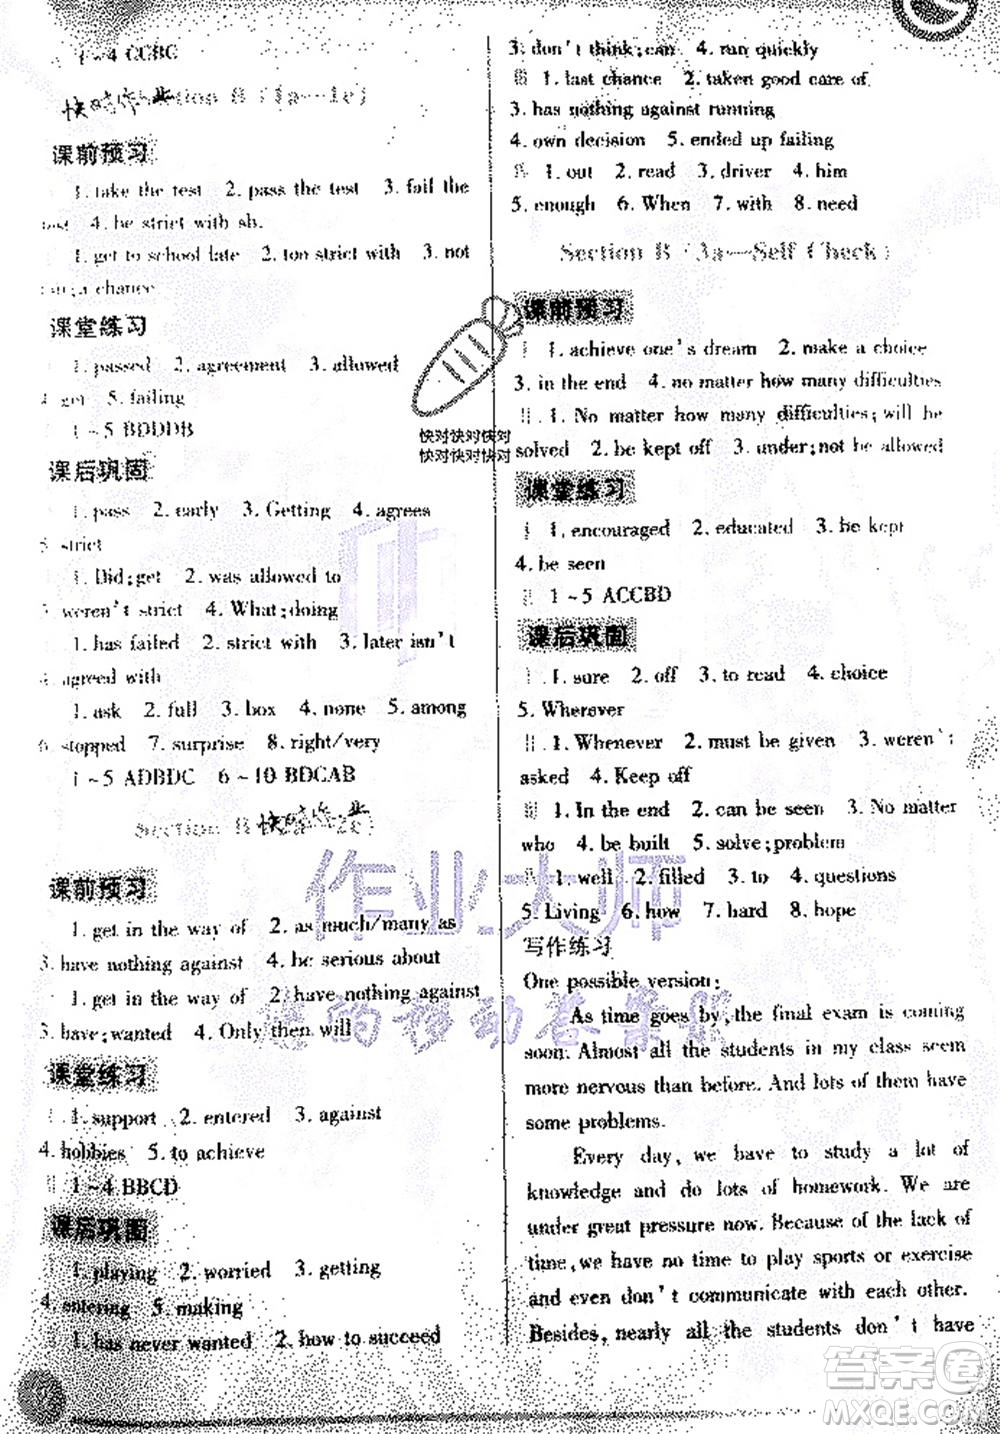 1~4 CCBC
Section B (1a—1e)
课前预习
1. take the test 2. pass the test 3. fail the
test 4. be strict with sb.
1. get to school late 2. too strict with 3. not
a chance
课堂练习
1. passed 2. agreement 3. allowed
4. get 5. failing
1~5 BDDDB
课后巩固
1. pass 2. early 3. Getting 4. agrees
5. strict
1. Did;get 2. was allowed to
3. weren't strict 4. What;doing
1. has failed 2. strict with 3. later isn't
4. agreed with
1. ask 2. full 3. box 4. none 5. among
6. stopped 7. surprise 8. right/very
1~5 ADBDC 6~10 BDCAB
Section B 2e)
课前预习
1. get in the way of 2. as much/many as
3. have nothing against 4. be serious about
1. get in the way of 2. have nothing against
3. have;wanted 4. Only then will
课堂练习
1. support 2. entered 3. against
4. hobbies 5. to achieve
1~4 BBCD
课后巩固
1. playing 2. worried 3. getting
4. entering 5. making
1. has never wanted 2. how to succeed
3. don't think;can 4. run quickly
Ⅲ 1. last chance 2. taken good care of
3. has nothing against running
4. own decision 5. ended up failing
1. out 2. read 3. driver 4. him
5. enough 6. When 7. with 8. need
Section B (3a—Self Check)
课前预习
Ⅰ 1. achieve one's dream 2. make a choice
3. in the end 4. no matter how many difficulties
Ⅱ 1. No matter how many difficulties;will be
solved 2. be kept off 3. under;not be allowed
课堂练习
Ⅰ 1. encouraged 2. educated 3. be kept
4. be seen
Ⅱ 1~5 ACCBD
课后巩固
Ⅰ 1. sure 2. off 3. to read 4. choice
5. Wherever
Ⅱ 1. Whenever 2. must be given 3. weren't
asked 4. Keep off
Ⅲ 1. In the end 2. can be seen 3. No matter
who 4. be built 5. solve;problem
1. well 2. filled 3. to 4. questions
5. Living 6. how 7. hard 8. hope
写作练习
One possible version:
As time goes by, the final exam is coming
soon. Almost all the students in my class seem
more nervous than before. And lots of them have
some problems.
Every day, we have to study a lot of
knowledge and do lots of homework. We are
under great pressure now. Because of the lack of
time, we have no time to play sports or exercise
and even don't communicate with each other.
Besides, nearly all the students don't have
快对快对快对
快对快对快对
作业大师
答案圈
MXQE.COM